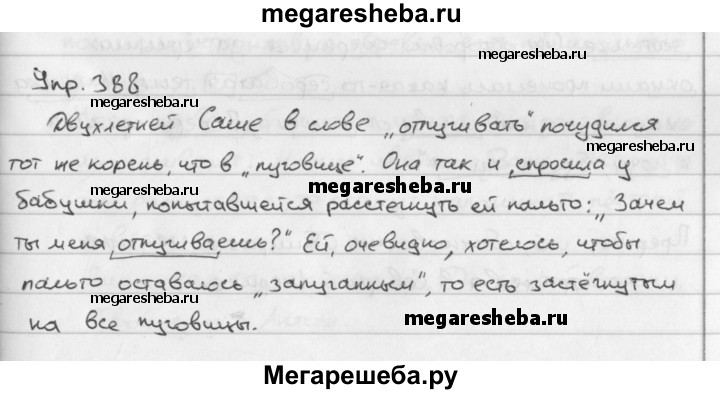 megaresheba.ru
Упр. 388
megaresheba.ru
megaresheba.ru
Двухлетней Саше в слове „отпугивать“ почудился
тот же корень, что в „пуговице“. Она так и спросила у
megaresheba.ru
megaresheba.ru
бабушки, попытавшейся расстегнуть ей пальто: „Зачем
ты меня отпугиваешь?“ Ей, очевидно, хотелось, чтобы
пальто оставалось „запуганным“, то есть застёгнутым
megaresheba.ru
на все пуговицы.
megaresheba.ru
Мегарешеба.ру